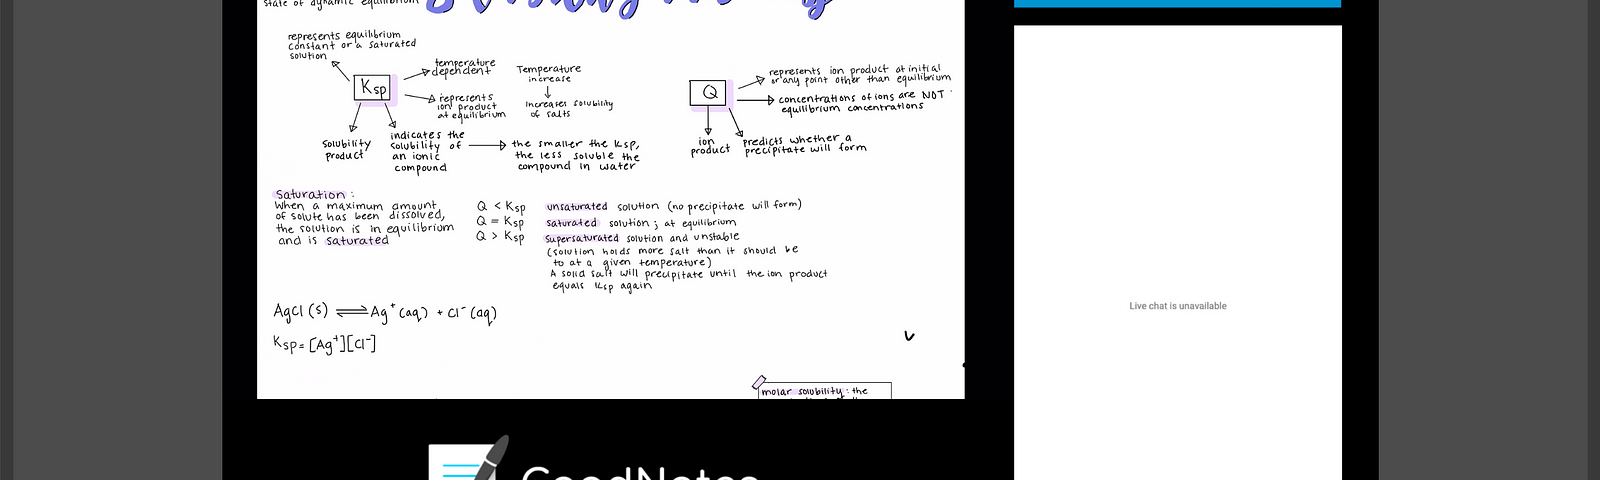 state of dynamic equilibrium
represents equilibrium
constant or a saturated
solution
Ksp
temperature
dependent
represents
ion product
at equilibrium
Temperature
increase
↓
Increases solubility
of salts
Solubility
product
indicates the
solubility of
an ionic
compound
the smaller the Ksp,
the less soluble the
compound in water
Q
represents ion product at initial
or any point other than equilibrium
concentrations of ions are NOT
equilibrium concentrations
ion
product
predicts whether a
precipitate will form
Saturation:
When a maximum amount
of solute has been dissolved,
the solution is in equilibrium
and is saturated
Q < Ksp unsaturated solution (no precipitate will form)
Q = Ksp saturated solution; at equilibrium
Q > Ksp supersaturated solution and unstable
(solution holds more salt than it should be
to at a given temperature)
A solid salt will precipitate until the ion product
equals Ksp again
AgCl (s) ⇌ Ag⁺ (aq) + Cl⁻ (aq)
Ksp = [Ag⁺][Cl⁻]
molar solubility: the
GoodNotes
Live chat is unavailable